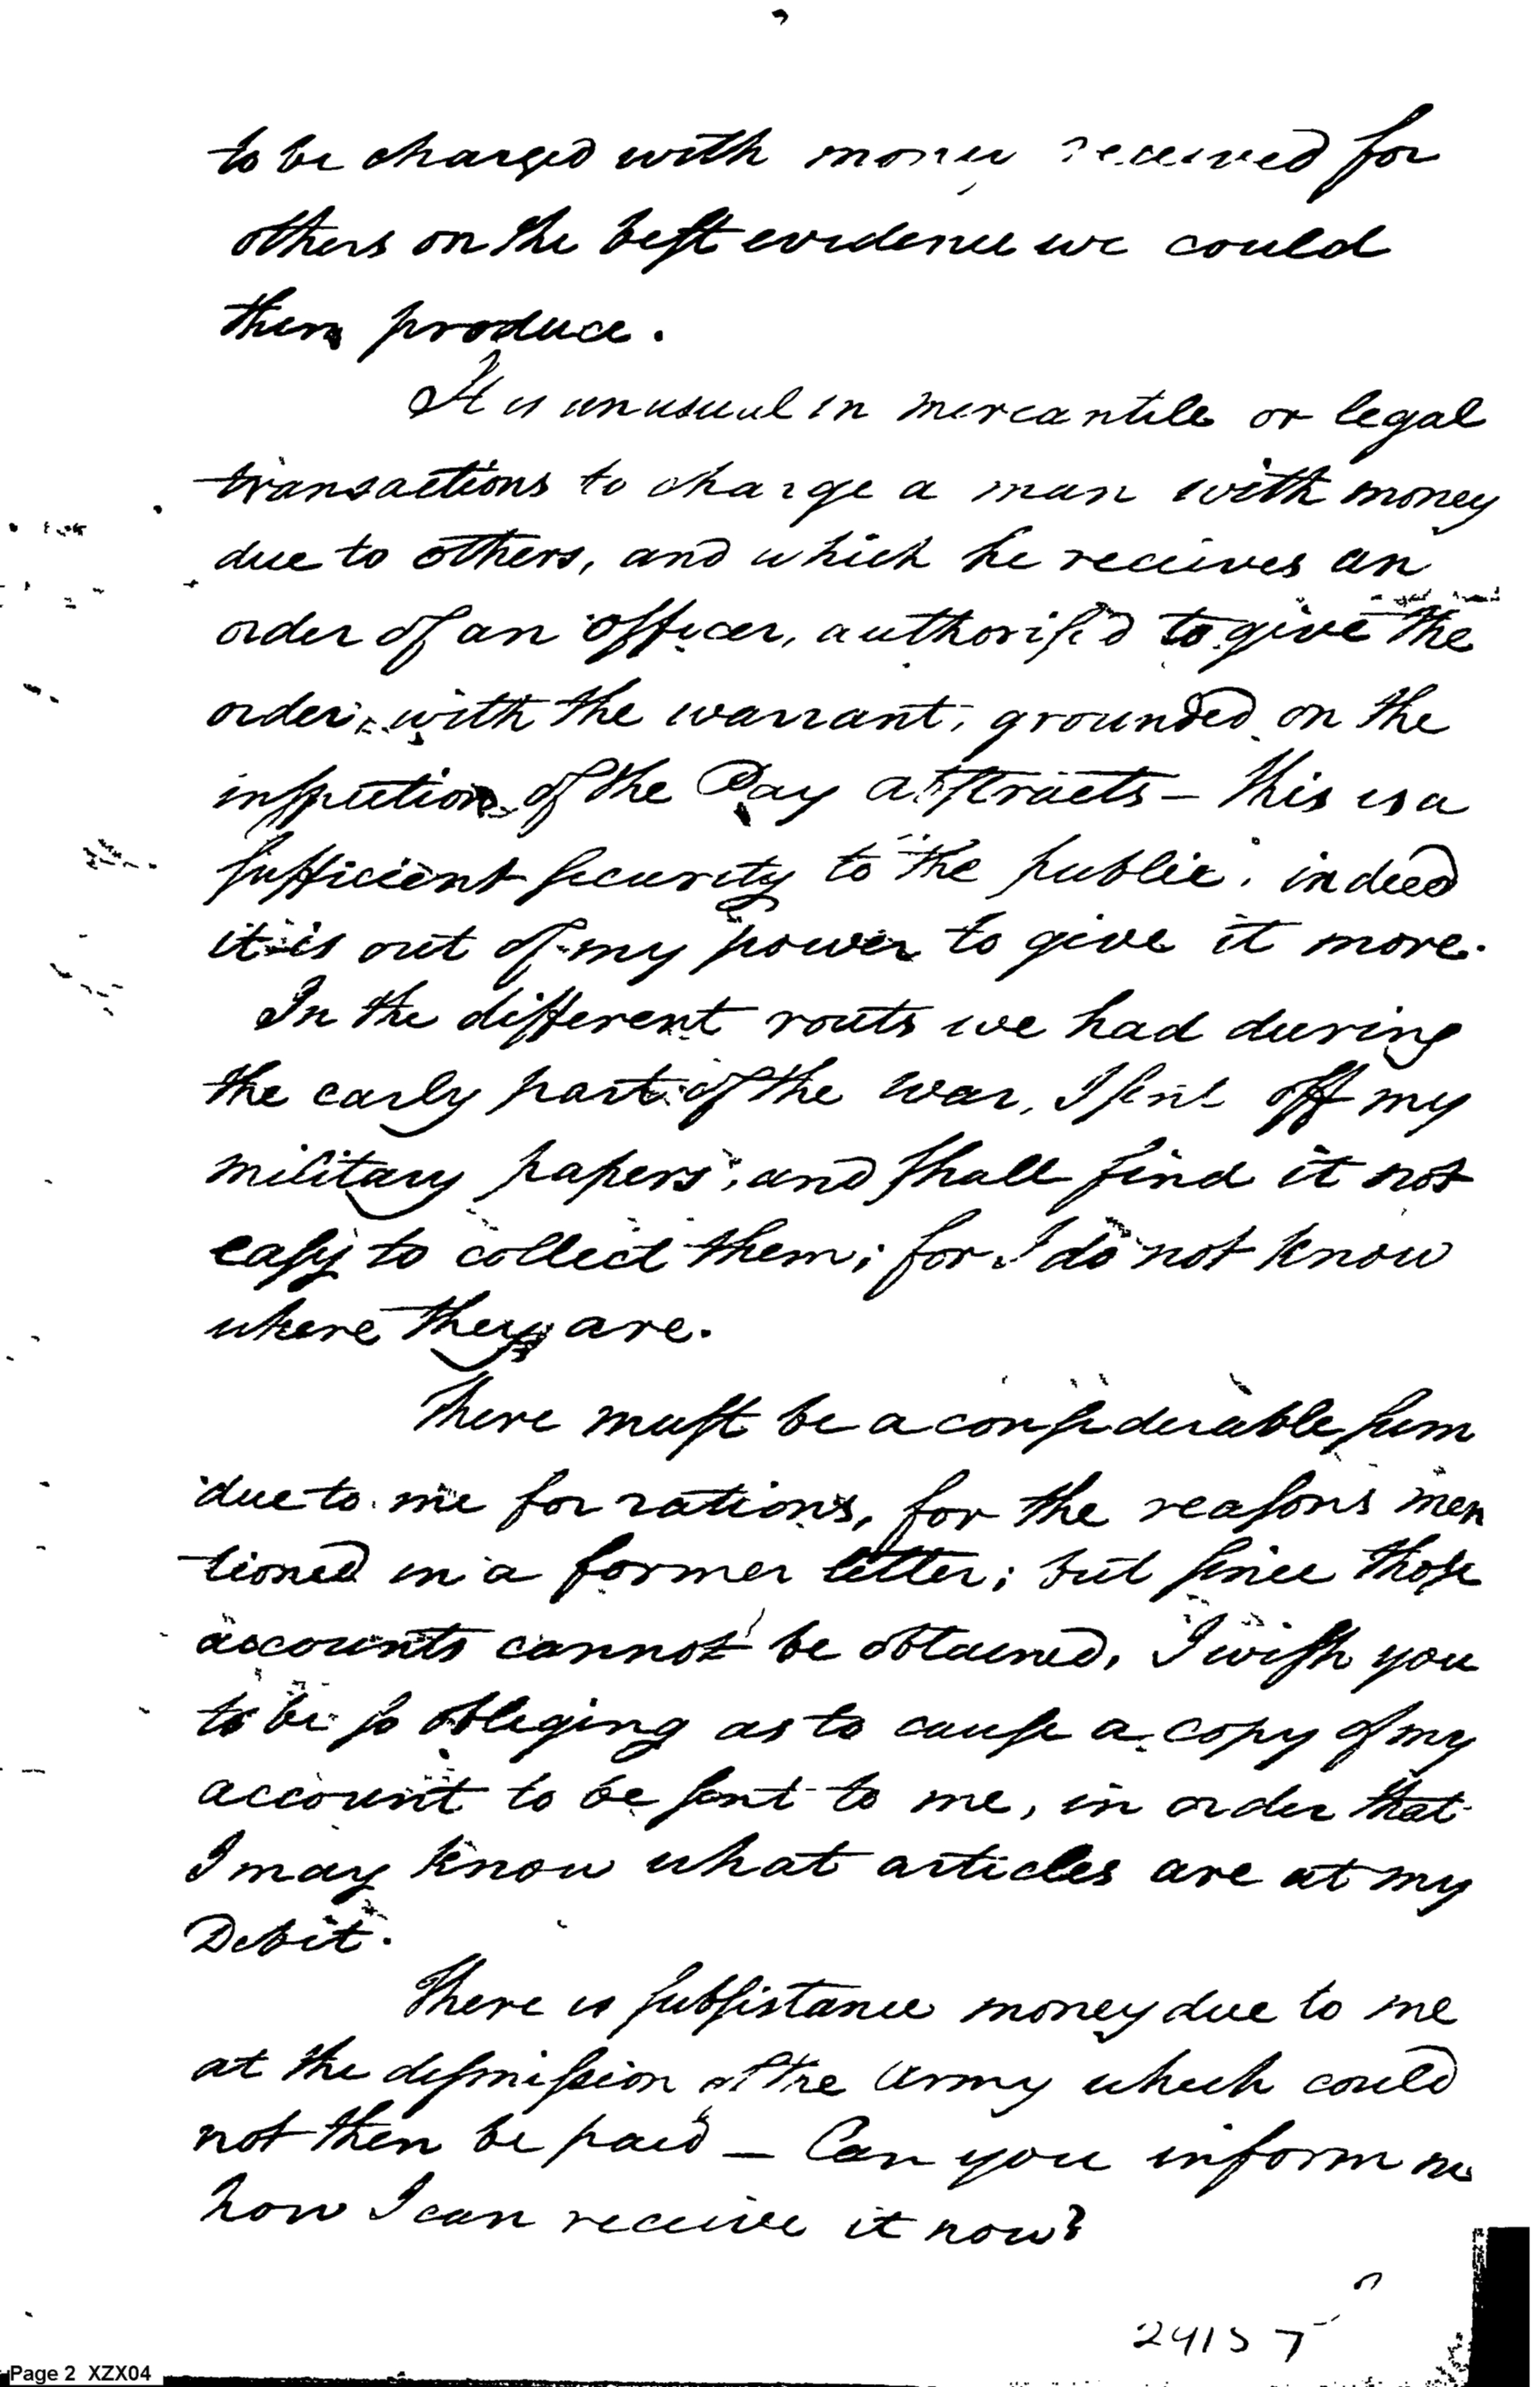 to be charged with money received for
others on the best evidence we could
then produce.
It is unusual in mercantile or legal
transactions to charge a man with money
due to others, and which he receives an
order of an officer, authoris'd to give the
order, with the warrant, grounded on the
inspection of the Pay abstracts – this is a
sufficient security to the public; indeed
it is out of my power to give it more.
In the different routs we had during
the early part of the war, I sent off my
military papers; and shall find it not
easy to collect them; for I do not know
where they are.
There must be a considerable sum
due to me for rations, for the reasons men
tioned in a former letter; but since those
accounts cannot be obtained, I wish you
to be so obliging as to cause a copy of my
account to be sent to me, in order that
I may know what articles are at my
Debit.
There is subsistance money due to me
at the dismission of the Army which could
not then be paid – Can you inform me
how I can receive it now?
24157
Page 2 XZX04